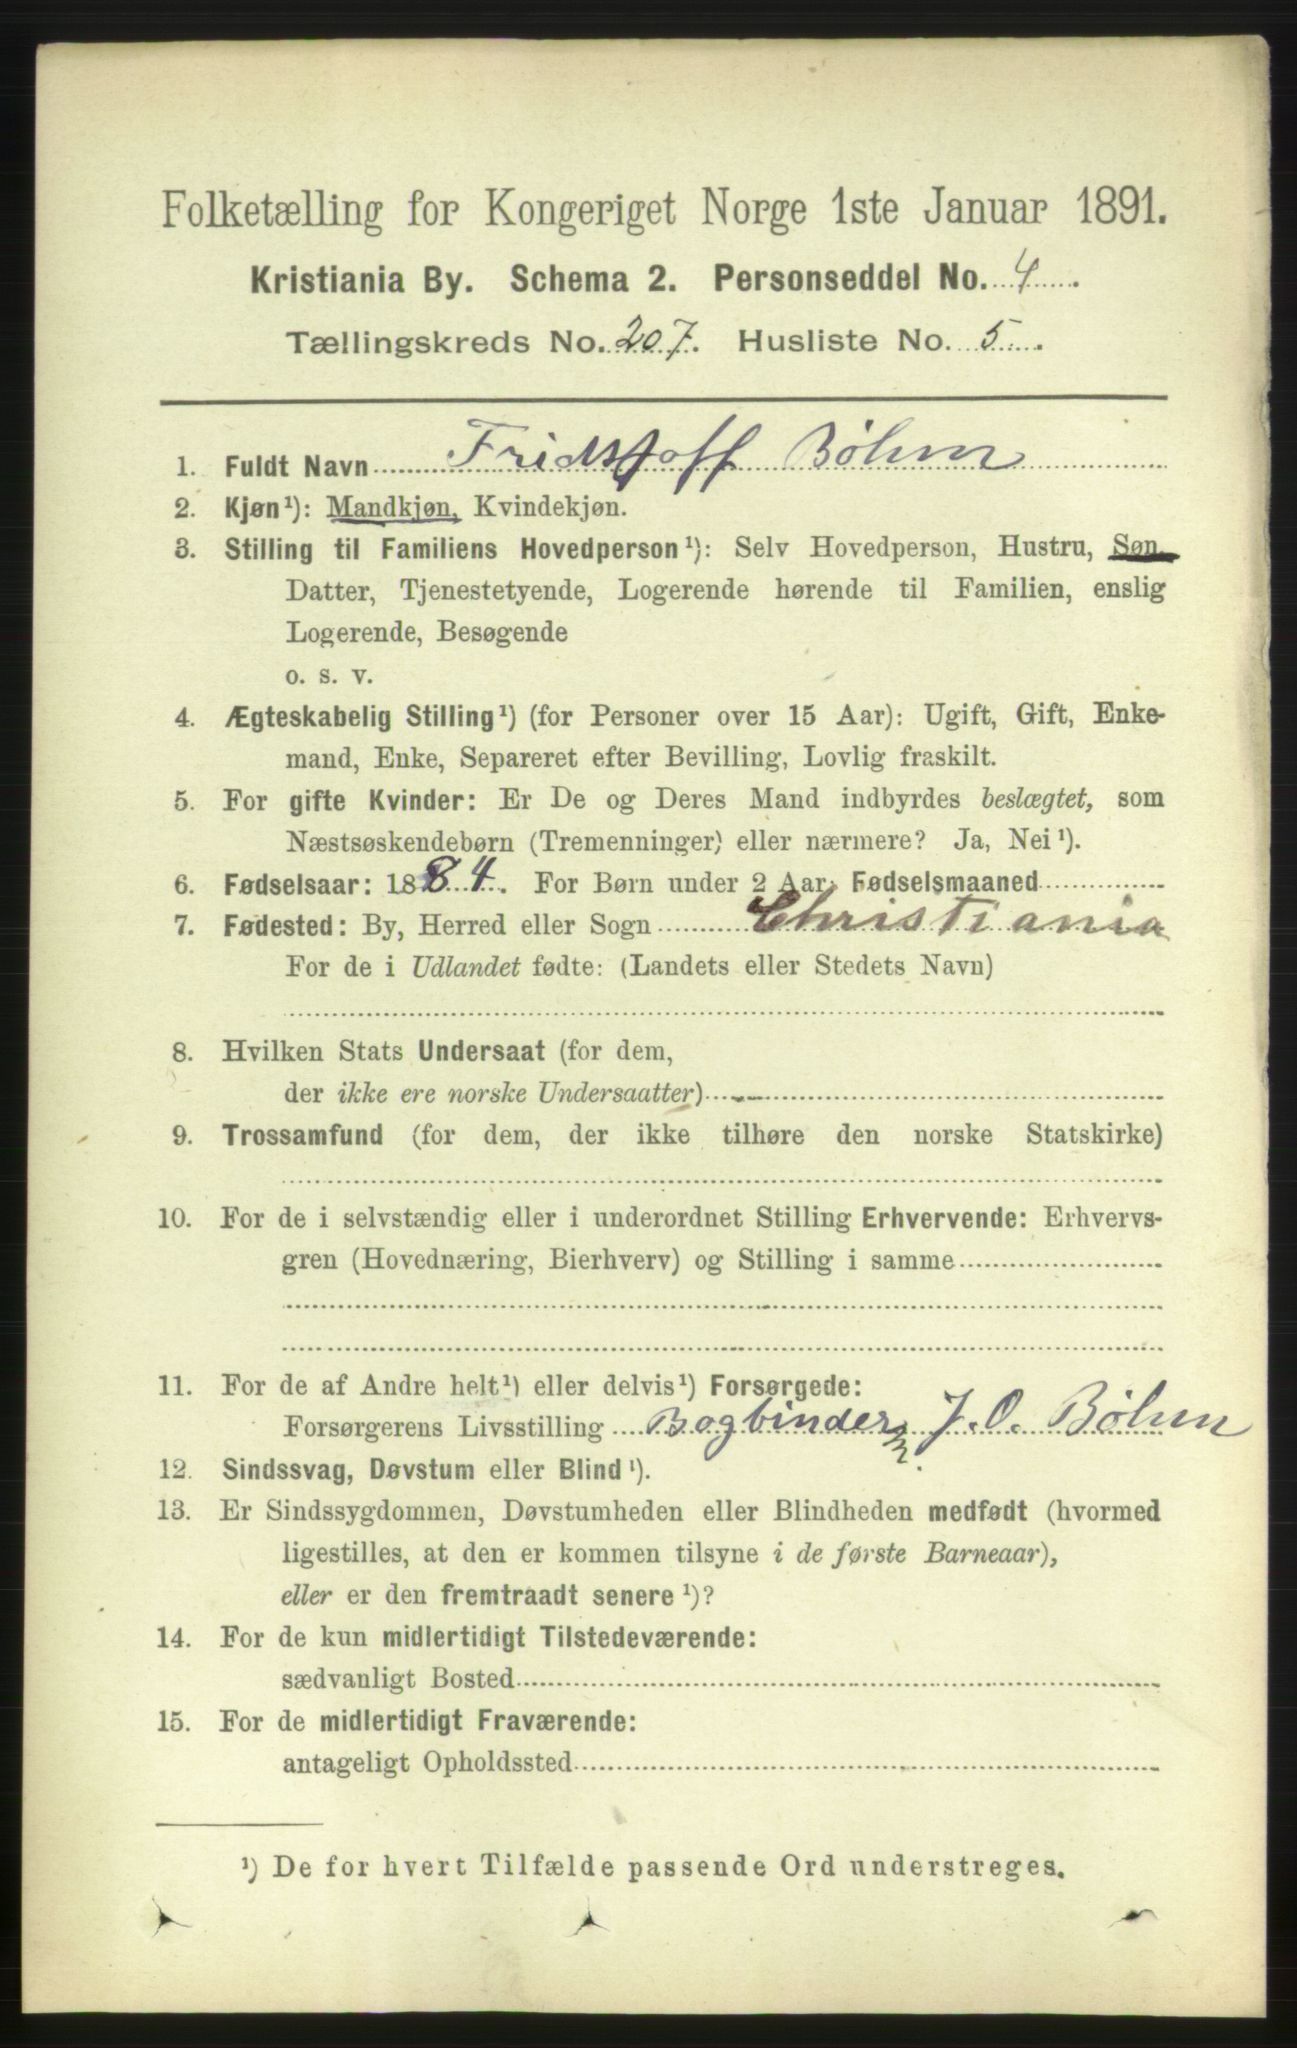 Folketælling for Kongeriget Norge 1ste Januar 1891.
Kristiania By. Schema 2. Personseddel No. 4.
Tællingskreds No. 207. Husliste No. 5.
1. Fuldt Navn Fridstoff Bøhm
2. Kjøn¹): Mandkjøn, Kvindekjøn.
3. Stilling til Familiens Hovedperson¹): Selv Hovedperson, Hustru, Søn,
Datter, Tjenestetyende, Logerende hørende til Familien, enslig
Logerende, Besøgende
o. s. v.
4. Ægteskabelig Stilling¹) (for Personer over 15 Aar): Ugift, Gift, Enke-
mand, Enke, Separeret efter Bevilling, Lovlig fraskilt.
5. For gifte Kvinder: Er De og Deres Mand indbyrdes beslægtet, som
Næstsøskendebørn (Tremenninger) eller nærmere? Ja, Nei¹).
6. Fødselsaar: 1884. For Børn under 2 Aar: Fødselsmaaned
7. Fødested: By, Herred eller Sogn Christiania
For de i Udlandet fødte: (Landets eller Stedets Navn)
8. Hvilken Stats Undersaat (for dem,
der ikke ere norske Undersaatter)
9. Trossamfund (for dem, der ikke tilhøre den norske Statskirke)
10. For de i selvstændig eller i underordnet Stilling Erhvervende: Erhvervs-
gren (Hovednæring, Bierhverv) og Stilling i samme
11. For de af Andre helt¹) eller delvis¹) Forsørgede:
Forsørgerens Livsstilling Bogbinder J. O. Bøhm
12. Sindssvag, Døvstum eller Blind¹).
13. Er Sindssygdommen, Døvstumheden eller Blindheden medfødt (hvormed
ligestilles, at den er kommen tilsyne i de første Barneaar),
eller er den fremtraadt senere¹)?
14. For de kun midlertidigt Tilstedeværende:
sædvanligt Bosted
15. For de midlertidigt Fraværende:
antageligt Opholdssted
¹) De for hvert Tilfælde passende Ord understreges.